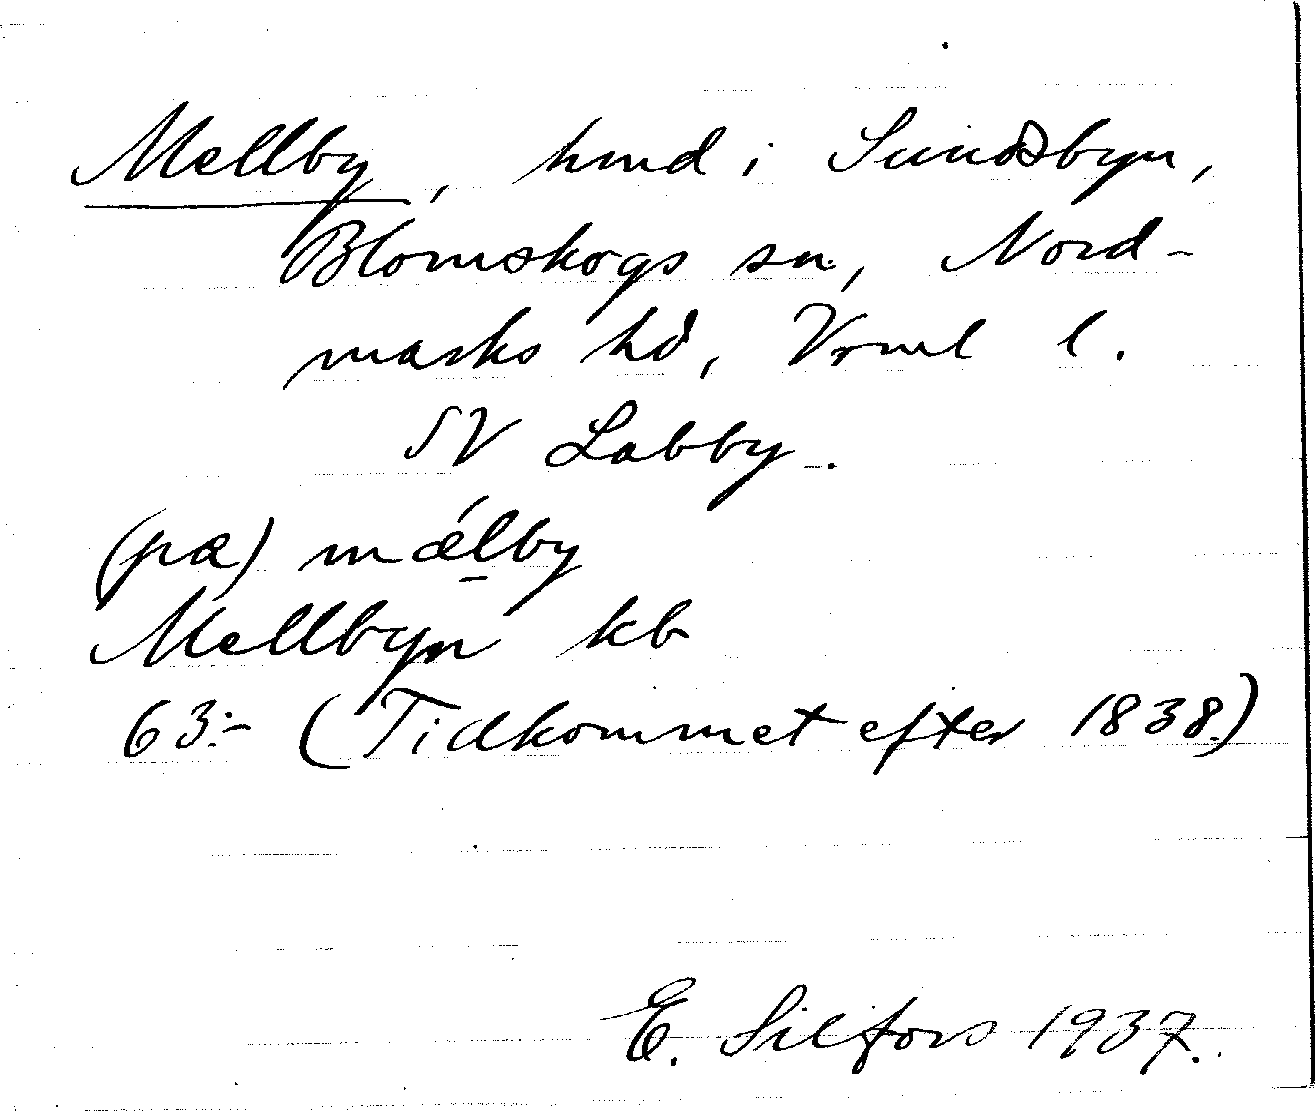 Mellby, hmd i Sundsbyn,
Blomskogs sn, Nord-
marks hd, Vrml l.
SV Labby.
(pæ) mǽl̠by
Mellbyn kb
63:- (Tidkommet efter 1838.)
E. Silfors 1937.